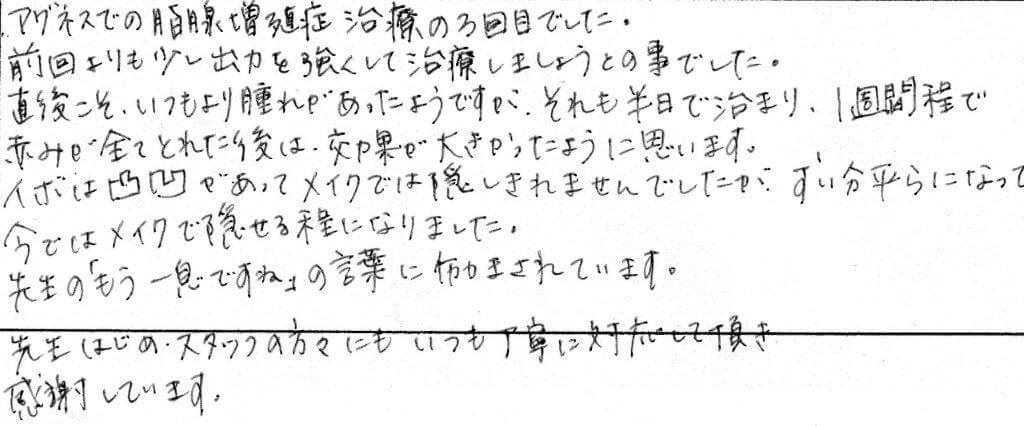 アグネスでの脂腺増殖症治療の3回目でした。
前回よりも少し出力を強くして治療しましょうとの事でした。
直後こそ、いつもより腫れがあったようですが、それも半日で治まり、1週間程で
赤みが全てとれた後は、効果が大きかったように思います。
イボは凸凹があってメイクでは隠しきれませんでしたが、ずい分平らになって
今ではメイクで隠せる程になりました。
先生の「もう一息ですね」の言葉に励まされています。
先生はじめ、スタッフの方々にもいつも丁寧に対応して頂き
感謝しています。